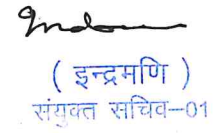 ( इन्द्रमणि )
संयुक्त सचिव–01